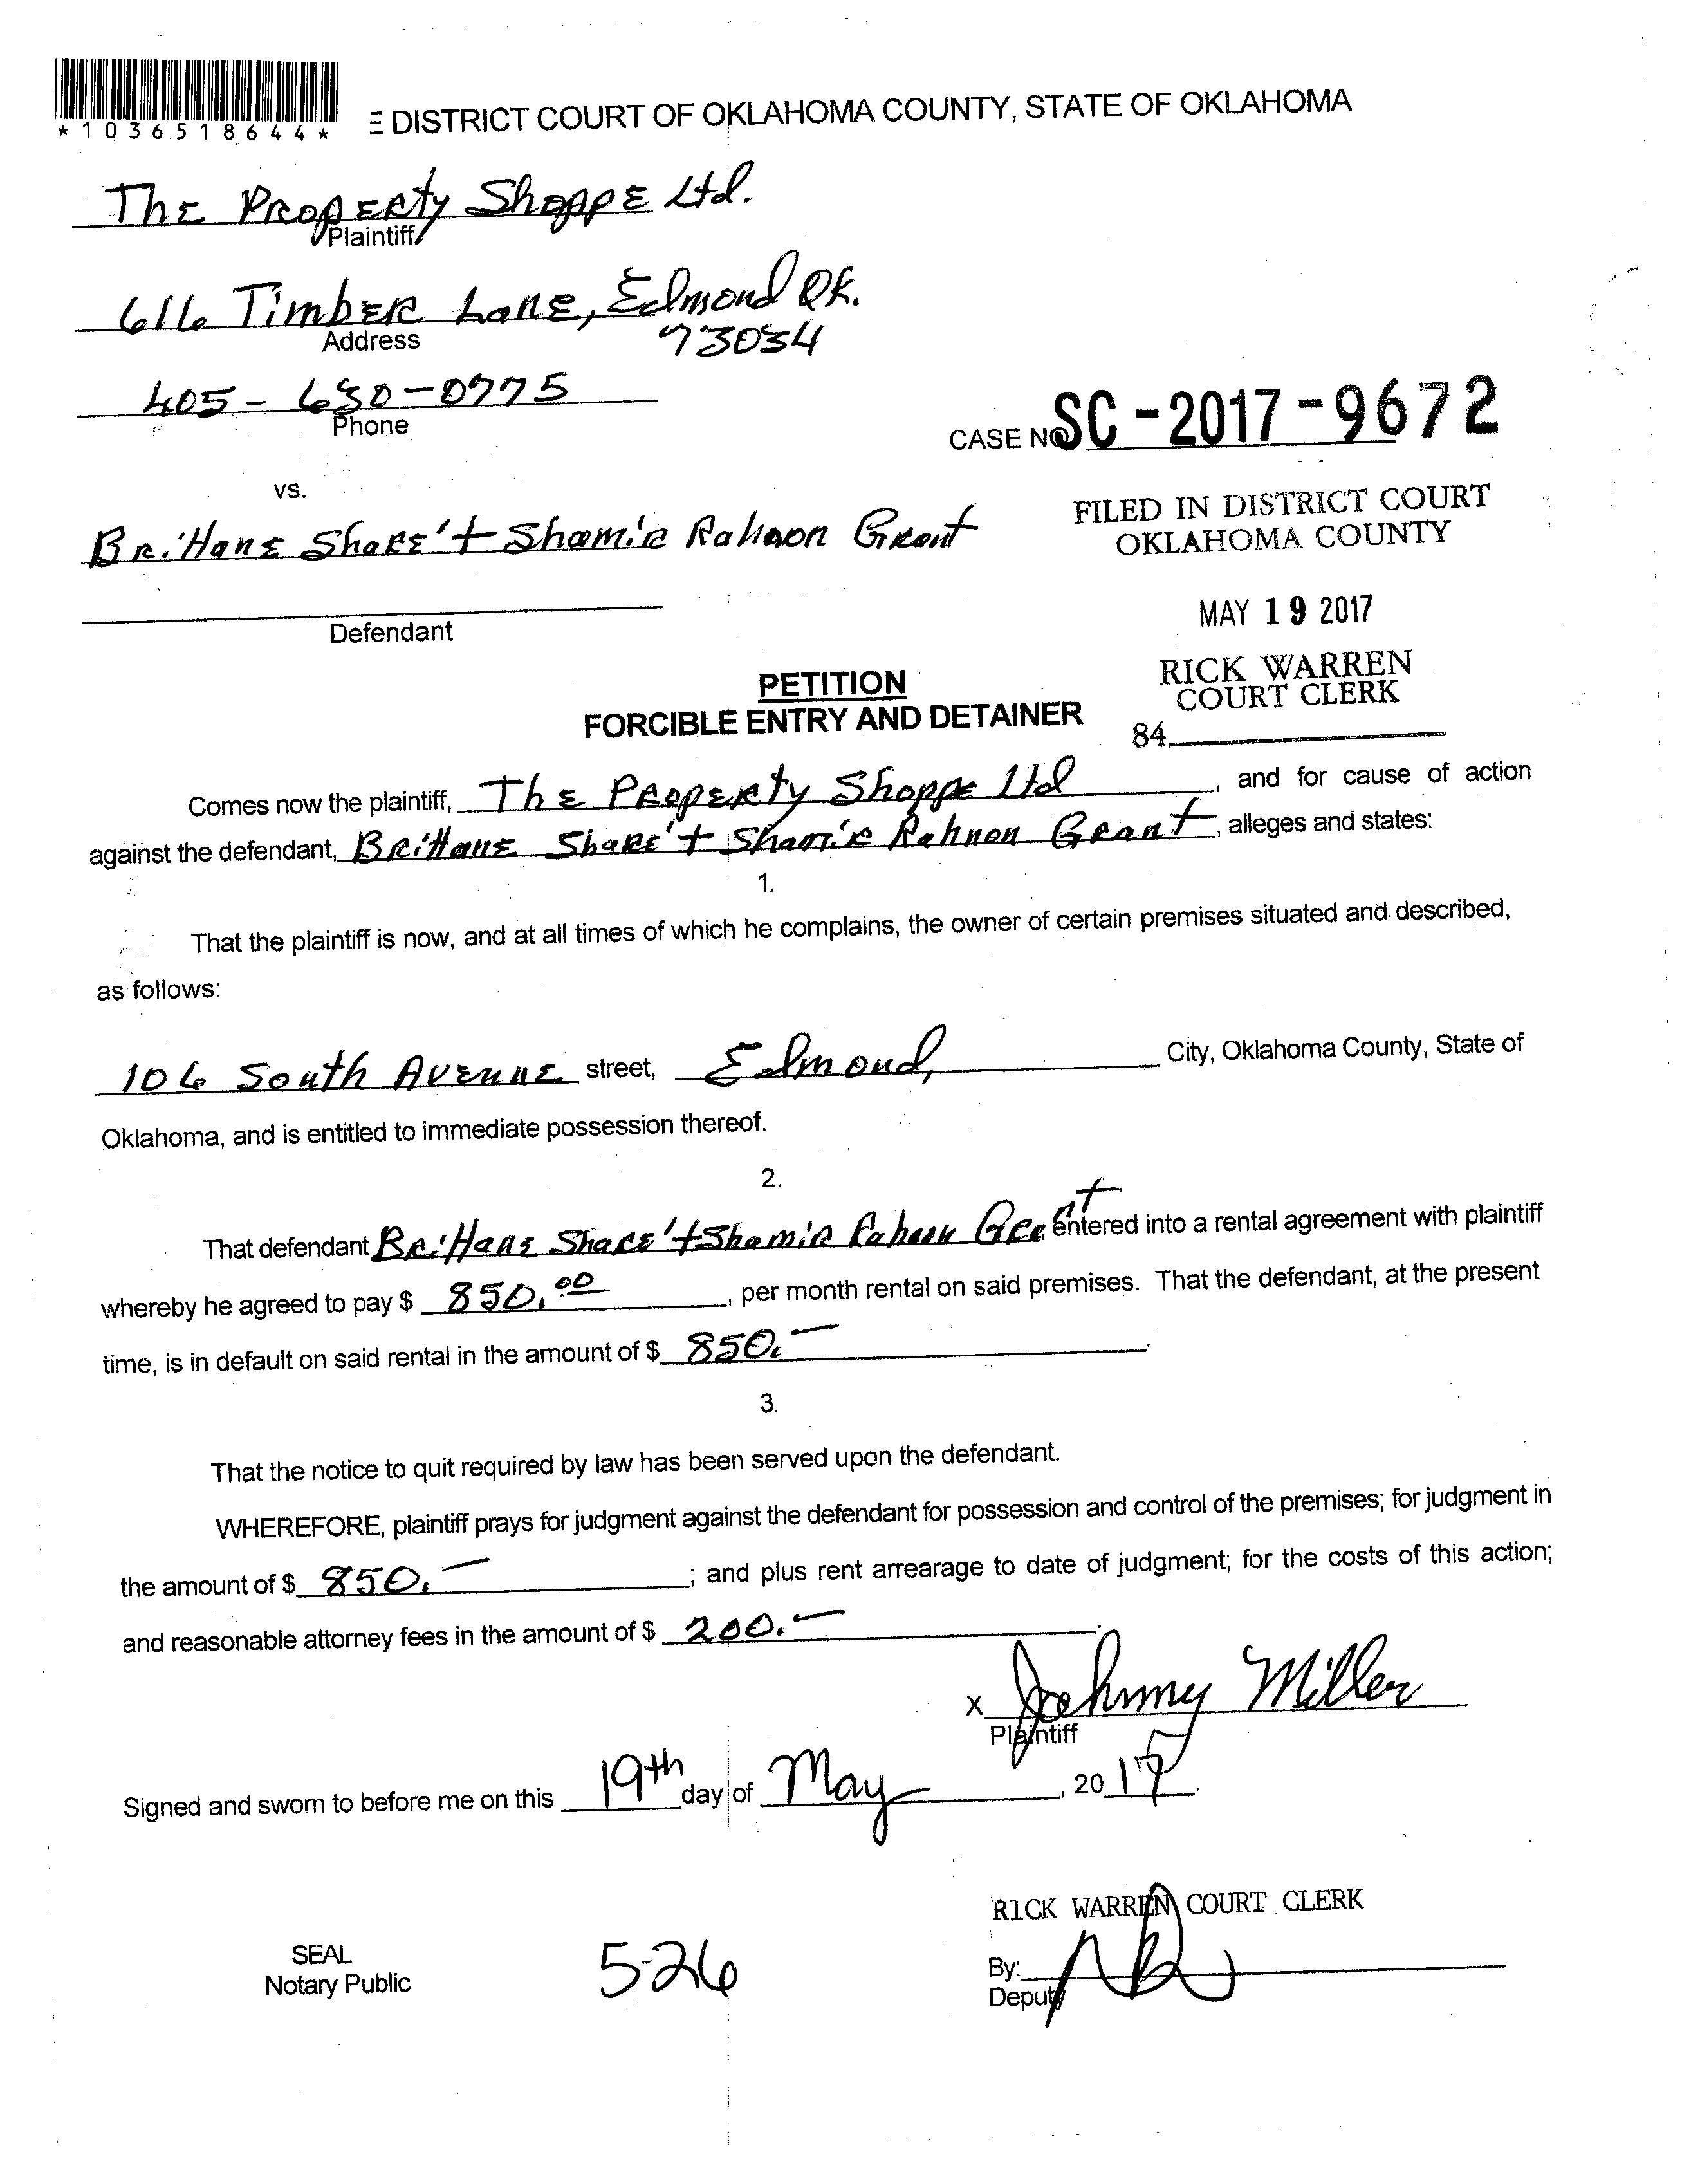 *1036518644*
E DISTRICT COURT OF OKLAHOMA COUNTY, STATE OF OKLAHOMA
The Property Shoppe Ltd.
Plaintiff
616 Timber Lane, Edmond Ok.
73034
Address
405-630-0775
Phone
CASE NO. SC-2017-9672
vs.
Brittane Share' + Shamir Rahnon Grant
FILED IN DISTRICT COURT
OKLAHOMA COUNTY
MAY 19 2017
Defendant
RICK WARREN
COURT CLERK
84
PETITION
FORCIBLE ENTRY AND DETAINER
Comes now the plaintiff, The Property Shoppe Ltd, and for cause of action
against the defendant, Brittane Share' + Shamir Rahnon Grant, alleges and states:
1.
That the plaintiff is now, and at all times of which he complains, the owner of certain premises situated and described,
as follows:
106 South Avenue street, Edmond, City, Oklahoma County, State of
Oklahoma, and is entitled to immediate possession thereof.
2.
That defendant Brittane Share' + Shamir Grant entered into a rental agreement with plaintiff
whereby he agreed to pay $ 850.00, per month rental on said premises. That the defendant, at the present
time, is in default on said rental in the amount of $ 850.—.
3.
That the notice to quit required by law has been served upon the defendant.
WHEREFORE, plaintiff prays for judgment against the defendant for possession and control of the premises; for judgment in
the amount of $ 850.—; and plus rent arrearage to date of judgment; for the costs of this action;
and reasonable attorney fees in the amount of $ 200.—.
X Johnny Miller
Plaintiff
Signed and sworn to before me on this 19th day of May, 2017.
RICK WARREN COURT CLERK
SEAL
Notary Public
5-26
By:
Deputy